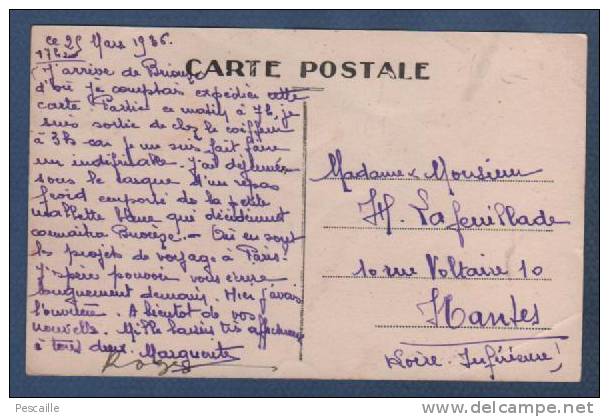 ce 25 Mars 1936.
17h
J'arrive de Brioude
CARTE POSTALE
d'où je comptais expédier cette
carte. Partie ce matin à 7h, je
suis sortie de chez le coiffeur
à 3h car je me suis fait faire
une indéfrisable. J'ai déjeuné
sous le casque d'un repas
froid emporté de la petite
mallette bleue qui décidément
connaîtra Brioude. - Où en sont
les projets de voyage à Paris?
J'espère pouvoir vous écrire
longuement demain. Hier j'avais
l'ouvrière. A bientôt de vos
nouvelles. Mille baisers très affectueux
à tous deux. Marguerite
Madame & Monsieur
H. Lafeuillade
10 rue Voltaire 10
Nantes
(Loire-Inférieure)
Pescaille
http://pescaille.delcampe.net